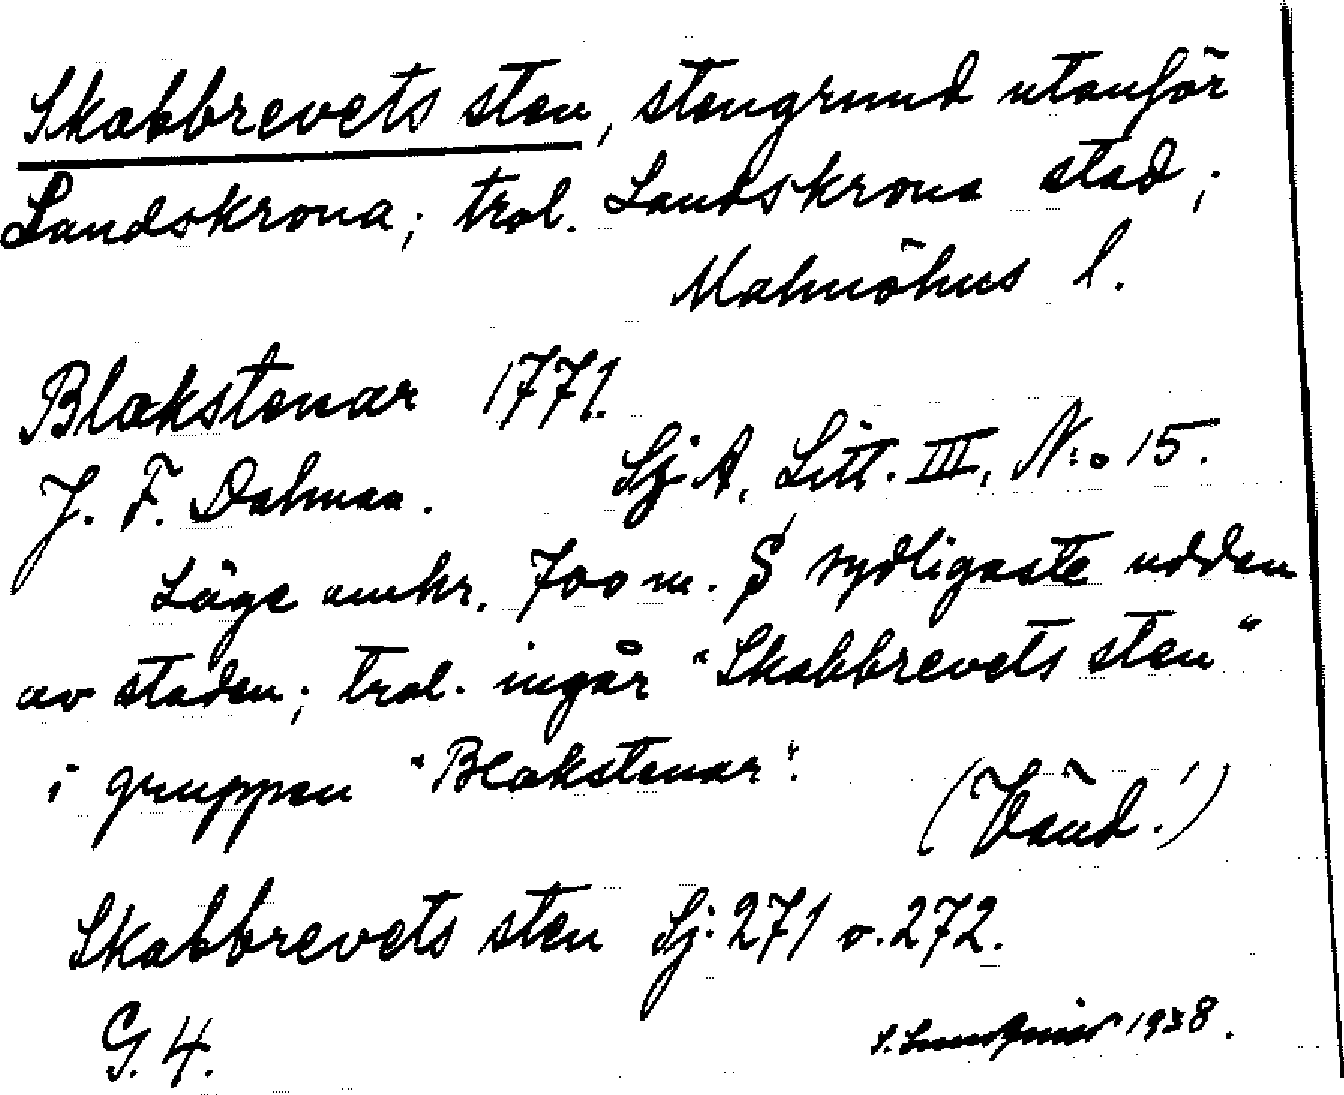 Skabbrevets sten, stengrund utanför
Landskrona; trol. Landskrona stad;
Malmöhus l.
Blakstenar 1771.
J. F. Dalman. Sj. A, Litt. III, N:o 15.
Läge omkr. 700 m. S sydligaste udden
av staden; trol. ingår "Skabbrevets sten"
i gruppen "Blakstenar".
(Vänd!)
Skabbrevets sten Sj. 271 o. 272.
G. 4.
1938.